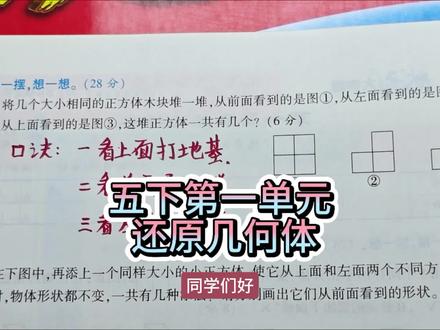 一摆,想一想。(28分)
将几个大小相同的正方体木块堆一堆,从前面看到的是图①,从左面看到的
从上面看到的是图③,这堆正方体一共有几个?(6分)
口诀:一看上面打地基
二
三看
②
五下第一单元
还原几何体
同学们好
在下图中,再添上一个同样大小的小正方体,使它从上面和左面两个不同方
时,物体形状都不变,一共有几种
画出它们从前面看到的形状。